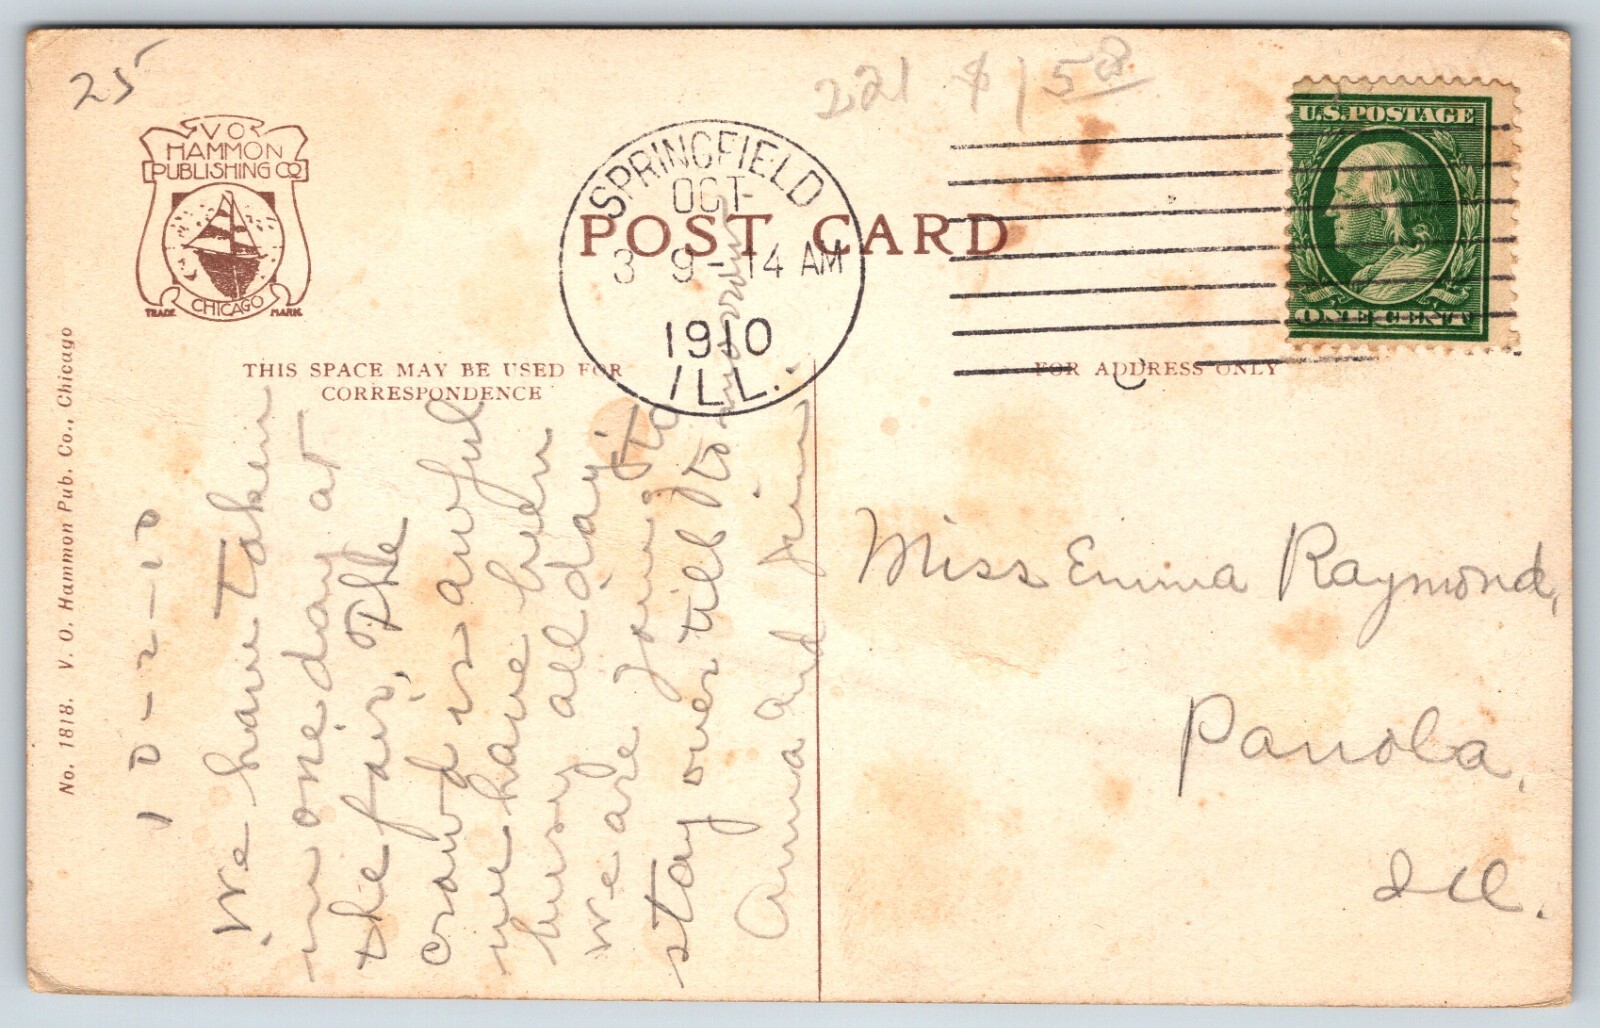 25
221 $1 58
VO
HAMMON
PUBLISHING CO
CHICAGO
TRADE MARK
SPRINGFIELD
OCT
3 9-14 AM
1910
ILL.
U.S. POSTAGE
ONE CENT
POST CARD
THIS SPACE MAY BE USED FOR
CORRESPONDENCE
FOR ADDRESS ONLY
No. 1818. V. O. Hammon Pub. Co., Chicago
10-2-10
We have taken
in one day at
the fair. The
crowd is awful
we have been
busy all day.
We are going to
stay over till tomorrow
Anna and Jim
Miss Emma Raymond,
Panola,
Ill.